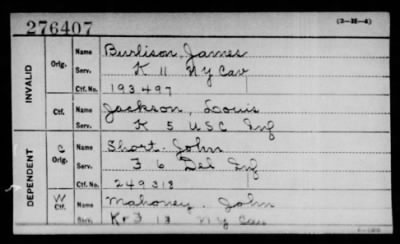 276407 (3-21-4)
INVALID
Orig. Name Burlison, James
Serv. K 11 NY Cav
Ctf. No. 193497
Ctf. Name Jackson, Louis
Serv. K 5 USC Inf
DEPENDENT
C
Orig. Name Short, John
Serv. I 6 Del Inf
Ctf. No. 249318
W
Ctf. Name Mahoney, John
Serv. K+I 13 NY Cav